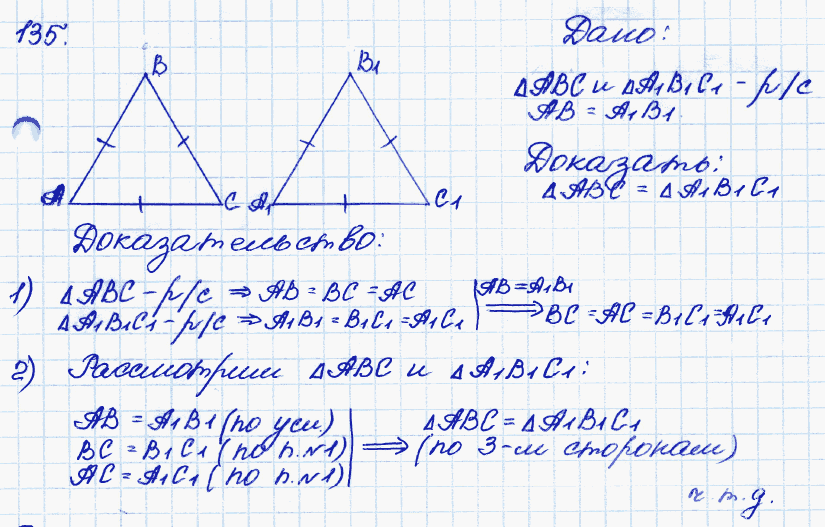 135.
B
A
C
B1
A1
C1
Дано:
△ABC и △A1B1C1 - р/с
AB = A1B1
Доказать:
△ABC = △A1B1C1
Доказательство:
1) △ABC - р/с ⇒ AB = BC = AC
△A1B1C1 - р/с ⇒ A1B1 = B1C1 = A1C1
AB = A1B1
⇒ BC = AC = B1C1 = A1C1
2) Рассмотрим △ABC и △A1B1C1:
AB = A1B1 (по усл.)
BC = B1C1 (по п.№1)
AC = A1C1 (по п.№1)
⇒ △ABC = △A1B1C1
(по 3-м сторонам)
ч.т.д.